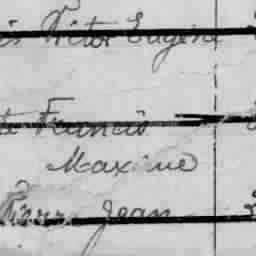 Victor Eugène
Francis
Maxime
Pierre Jean